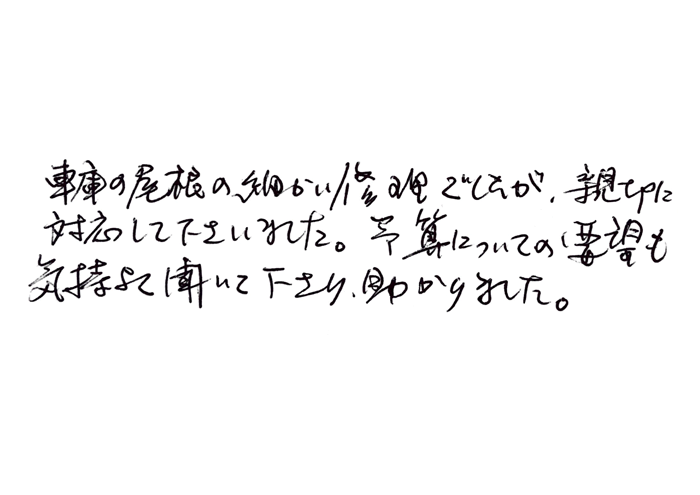 車庫の屋根の細かい修理でしたが、親切に
対応して下さいました。予算についての要望も
気持よく聞いて下さり、助かりました。